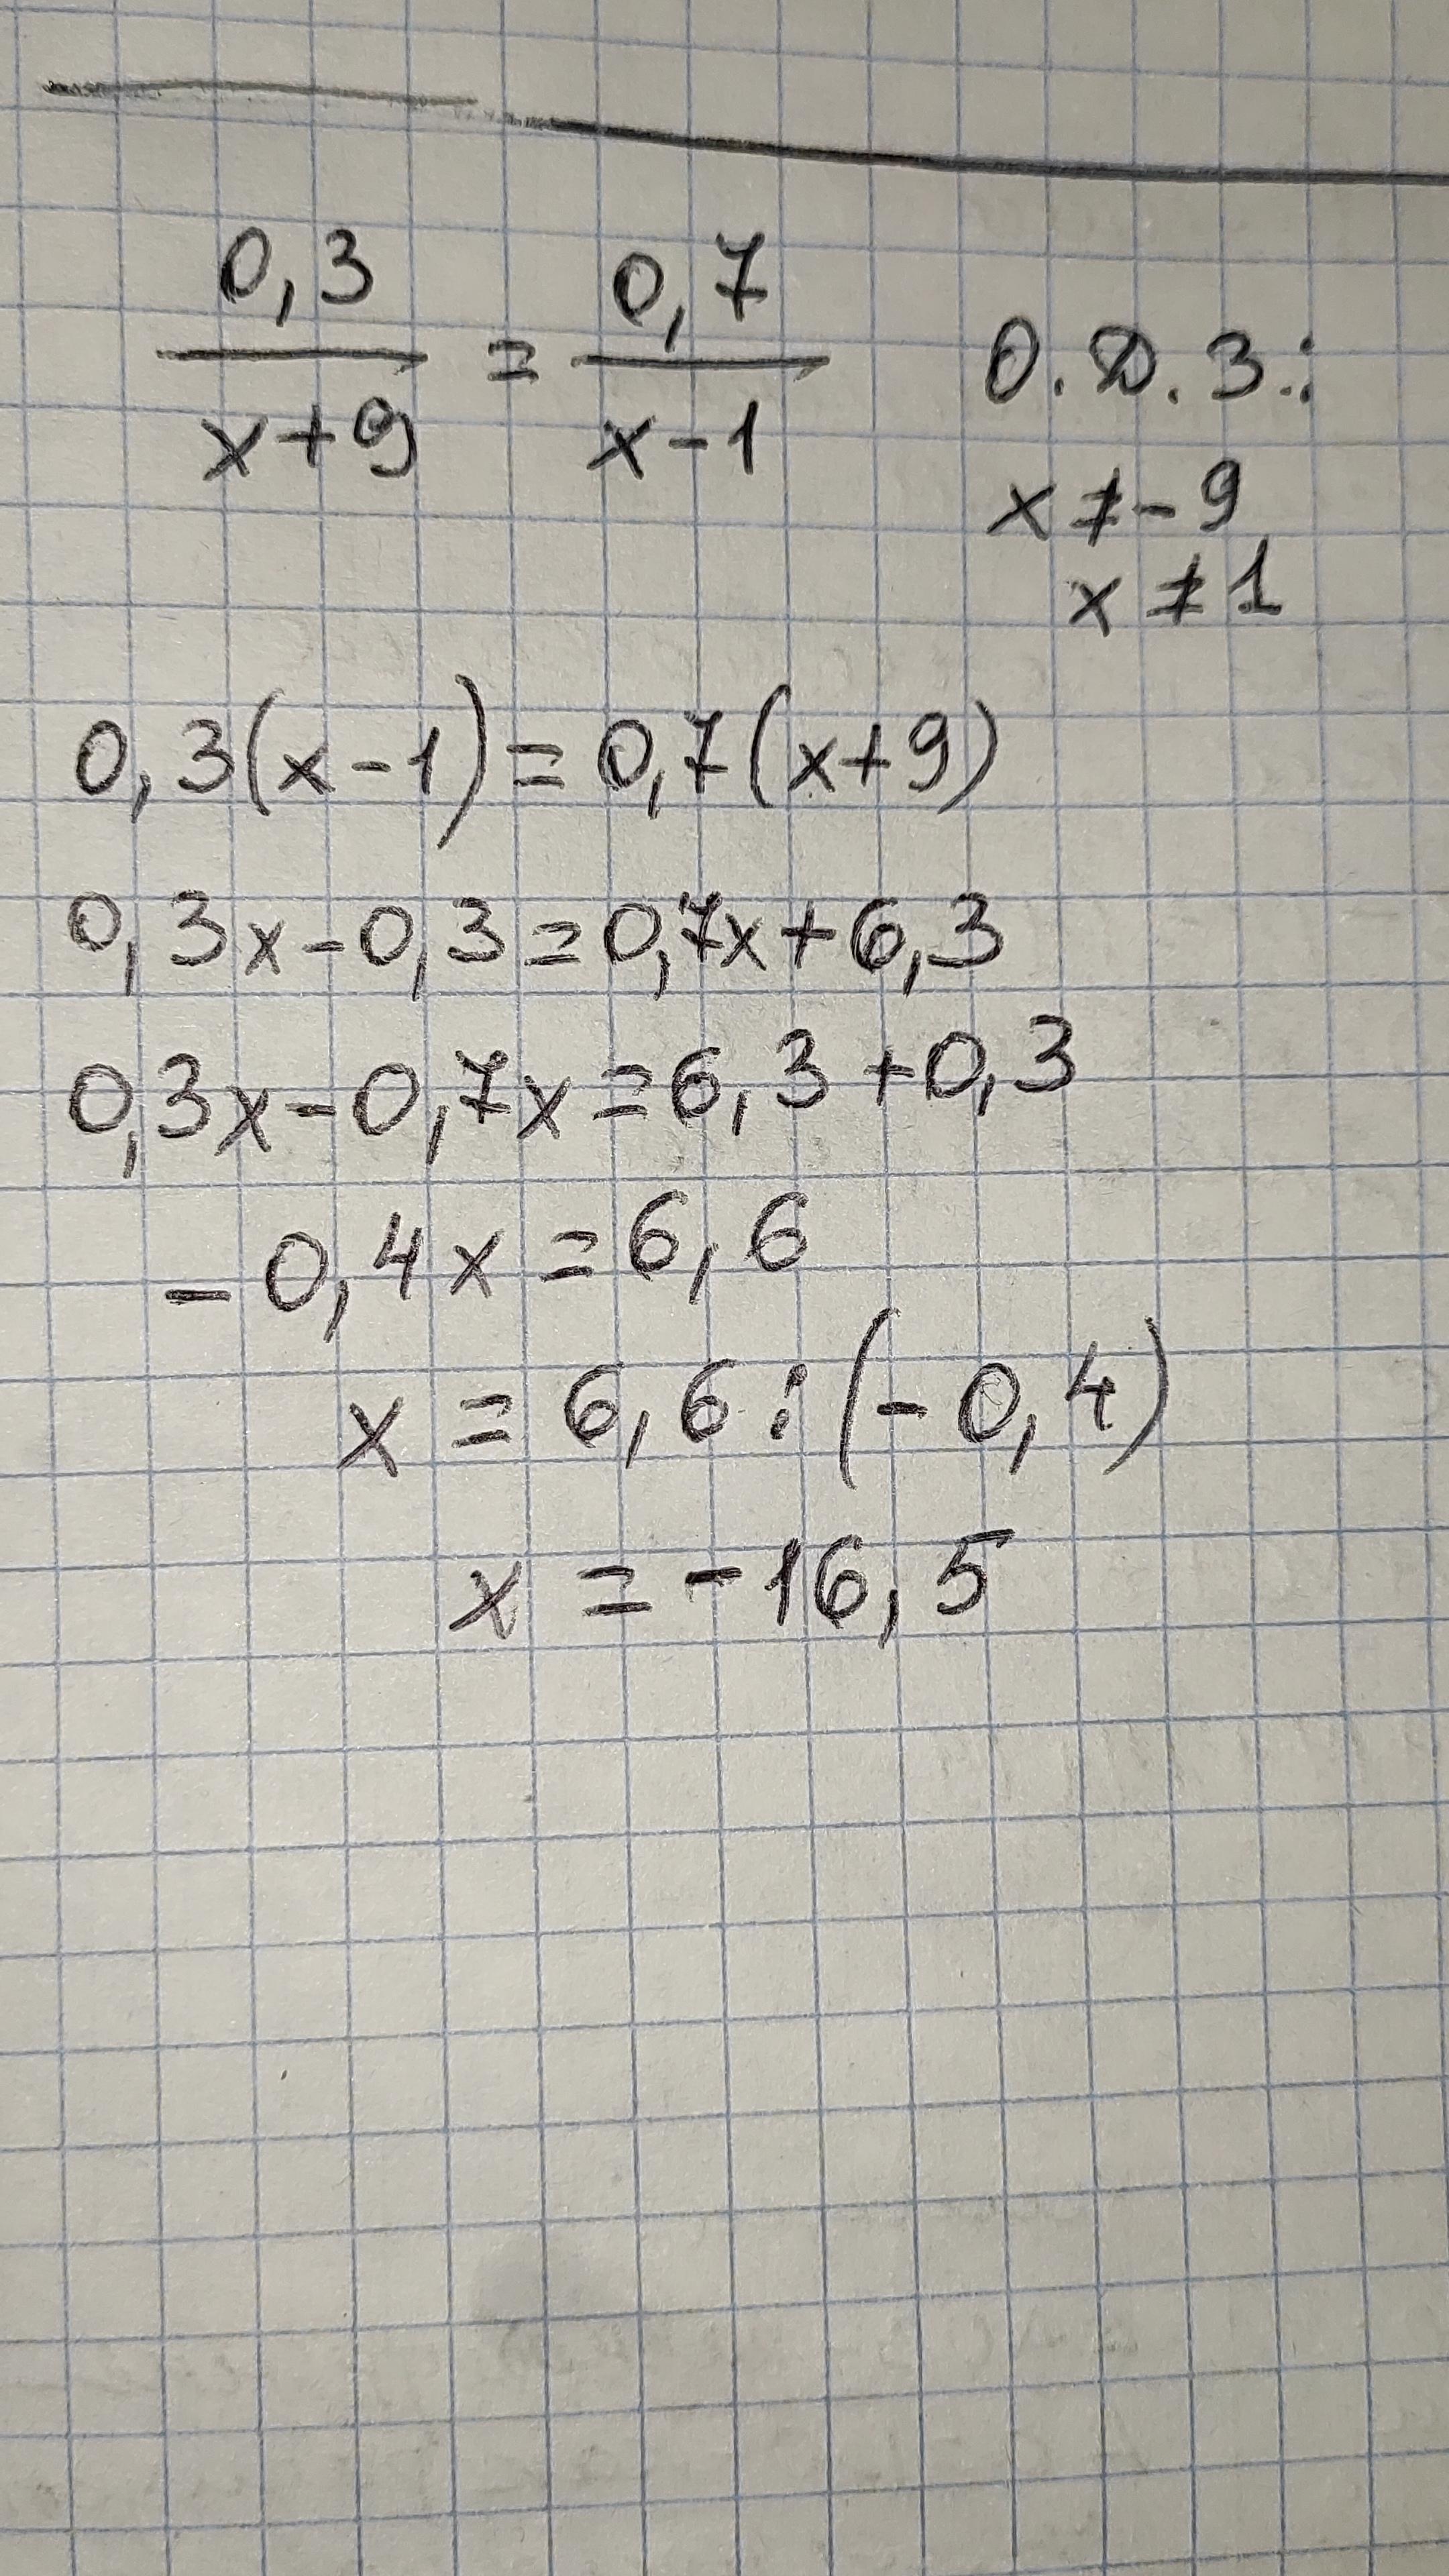 0,3/(x+9) = 0,7/(x-1)
О.Д.З.:
x ≠ -9
x ≠ 1
0,3(x-1)=0,7(x+9)
0,3x-0,3=0,7x+6,3
0,3x-0,7x=6,3+0,3
-0,4x=6,6
x = 6,6:(-0,4)
x = -16,5